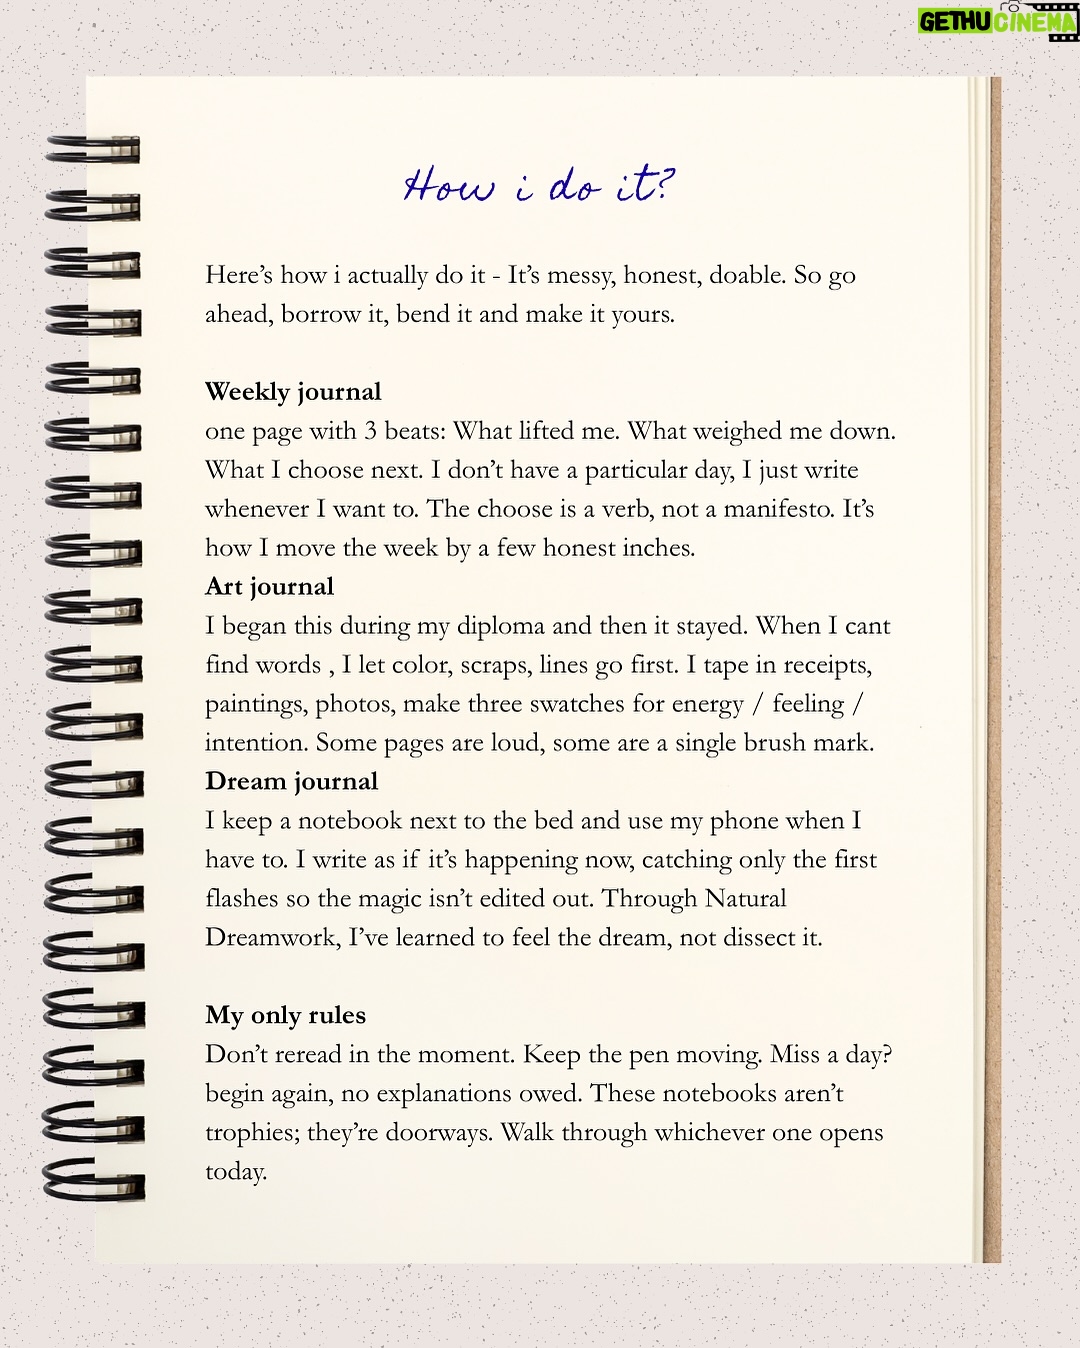 GETHUCINEMA
How i do it?
Here’s how i actually do it - It’s messy, honest, doable. So go
ahead, borrow it, bend it and make it yours.
Weekly journal
one page with 3 beats: What lifted me. What weighed me down.
What I choose next. I don’t have a particular day, I just write
whenever I want to. The choose is a verb, not a manifesto. It’s
how I move the week by a few honest inches.
Art journal
I began this during my diploma and then it stayed. When I cant
find words , I let color, scraps, lines go first. I tape in receipts,
paintings, photos, make three swatches for energy / feeling /
intention. Some pages are loud, some are a single brush mark.
Dream journal
I keep a notebook next to the bed and use my phone when I
have to. I write as if it’s happening now, catching only the first
flashes so the magic isn’t edited out. Through Natural
Dreamwork, I’ve learned to feel the dream, not dissect it.
My only rules
Don’t reread in the moment. Keep the pen moving. Miss a day?
begin again, no explanations owed. These notebooks aren’t
trophies; they’re doorways. Walk through whichever one opens
today.